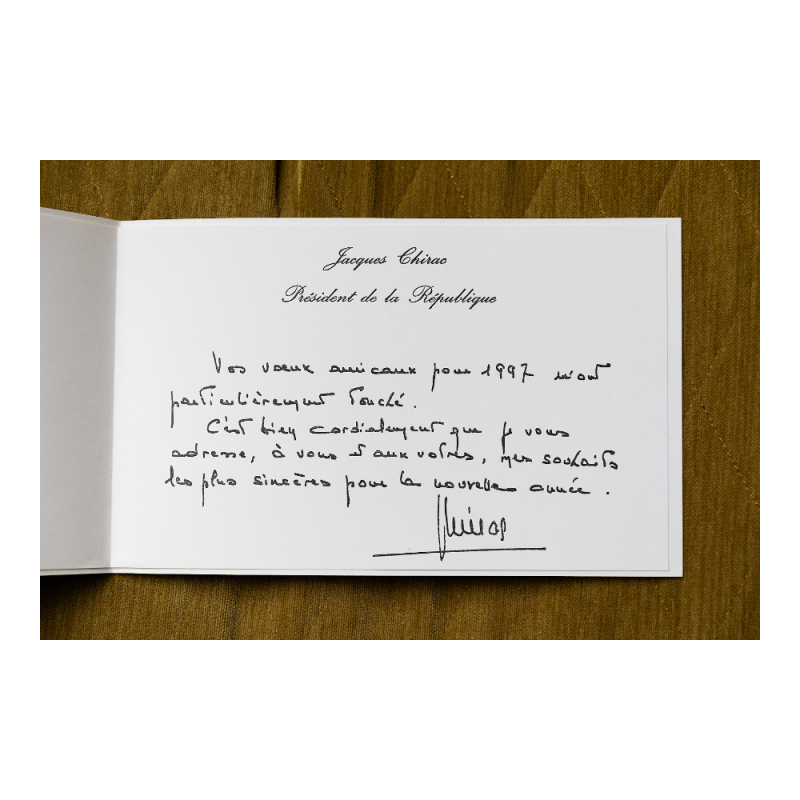 Jacques Chirac
Président de la République
Vos vœux amicaux pour 1997 m'ont
particulièrement touché.
C'est bien cordialement que je vous
adresse, à vous et aux vôtres, mes souhaits
les plus sincères pour la nouvelle année.